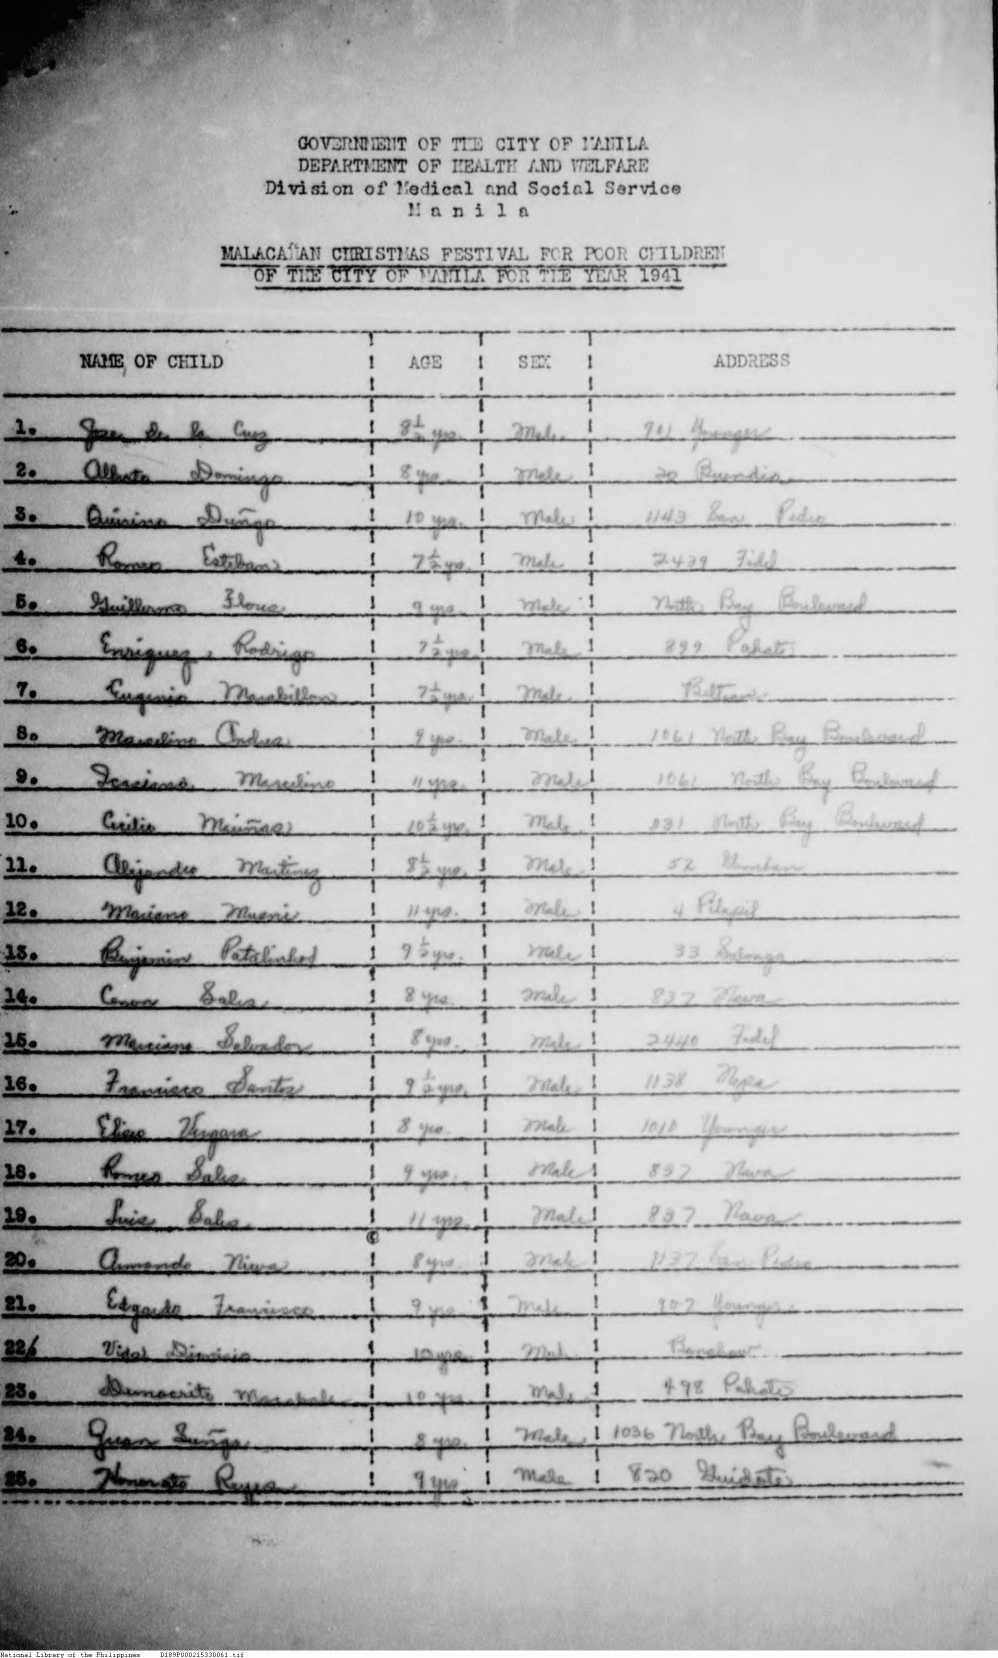 GOVERNMENT OF THE CITY OF MANILA
DEPARTMENT OF HEALTH AND WELFARE
Division of Medical and Social Service
M a n i l a
MALACAÑAN CHRISTMAS FESTIVAL FOR POOR CHILDREN
OF THE CITY OF MANILA FOR THE YEAR 1941
NAME OF CHILD ! AGE ! SEX ! ADDRESS
1. Jose de la Cruz ! 8½ yrs. ! Male ! 901 Younger
2. Alberto Domingo ! 8 yrs. ! Male ! 20 Buendia
3. Quirino Duñgo ! 10 yrs. ! Male ! 1143 San Pedro
4. Romeo Esteban ! 7½ yrs. ! Male ! 2439 Fidel
5. Guillermo Flores ! 9 yrs. ! Male ! North Bay Boulevard
6. Enriquez, Rodrigo ! 7½ yrs. ! Male ! 899 Pahato
7. Eugenio ! 7½ yrs. ! Male ! Beltran
8. Marcelino Andres ! 9 yrs. ! Male ! 1061 North Bay Boulevard
9. Marcelino ! 11 yrs. ! Male ! 1061 North Bay Boulevard
10. Cecilio ! 10½ yrs. ! Male ! 831 North Bay Boulevard
11. Alejandro Martinez ! 8½ yrs. ! Male ! 52
12. Mariano ! 11 yrs. ! Male ! 4 Pilapil
13. Benjamin Patalinhod ! 9½ yrs. ! Male ! 33
14. Cenon Sales ! 8 yrs. ! Male ! 837 Nava
15. Marciano Salvador ! 8 yrs. ! Male ! 2440 Fidel
16. Francisco Santos ! 9½ yrs. ! Male ! 1138 Nepa
17. Eliseo Vergara ! 8 yrs. ! Male ! 1010 Younger
18. Romeo Sales ! 9 yrs. ! Male ! 837 Nava
19. Luis Sales ! 11 yrs. ! Male ! 837 Nava
20. Armando ! 8 yrs. ! Male ! 1137 San Pedro
21. Edgardo Francisco ! 9 yrs. ! Male ! 907 Younger
22/ Vidal Dionisio ! 10 yrs. ! Male !
23. Democrito ! 10 yrs. ! Male ! 498 Pahato
24. Juan Suñga ! 8 yrs. ! Male ! 1036 North Bay Boulevard
25. Honorato Reyes ! 9 yrs. ! Male ! 820 Guidote
National Library of the Philippines D189P000215330061.tif